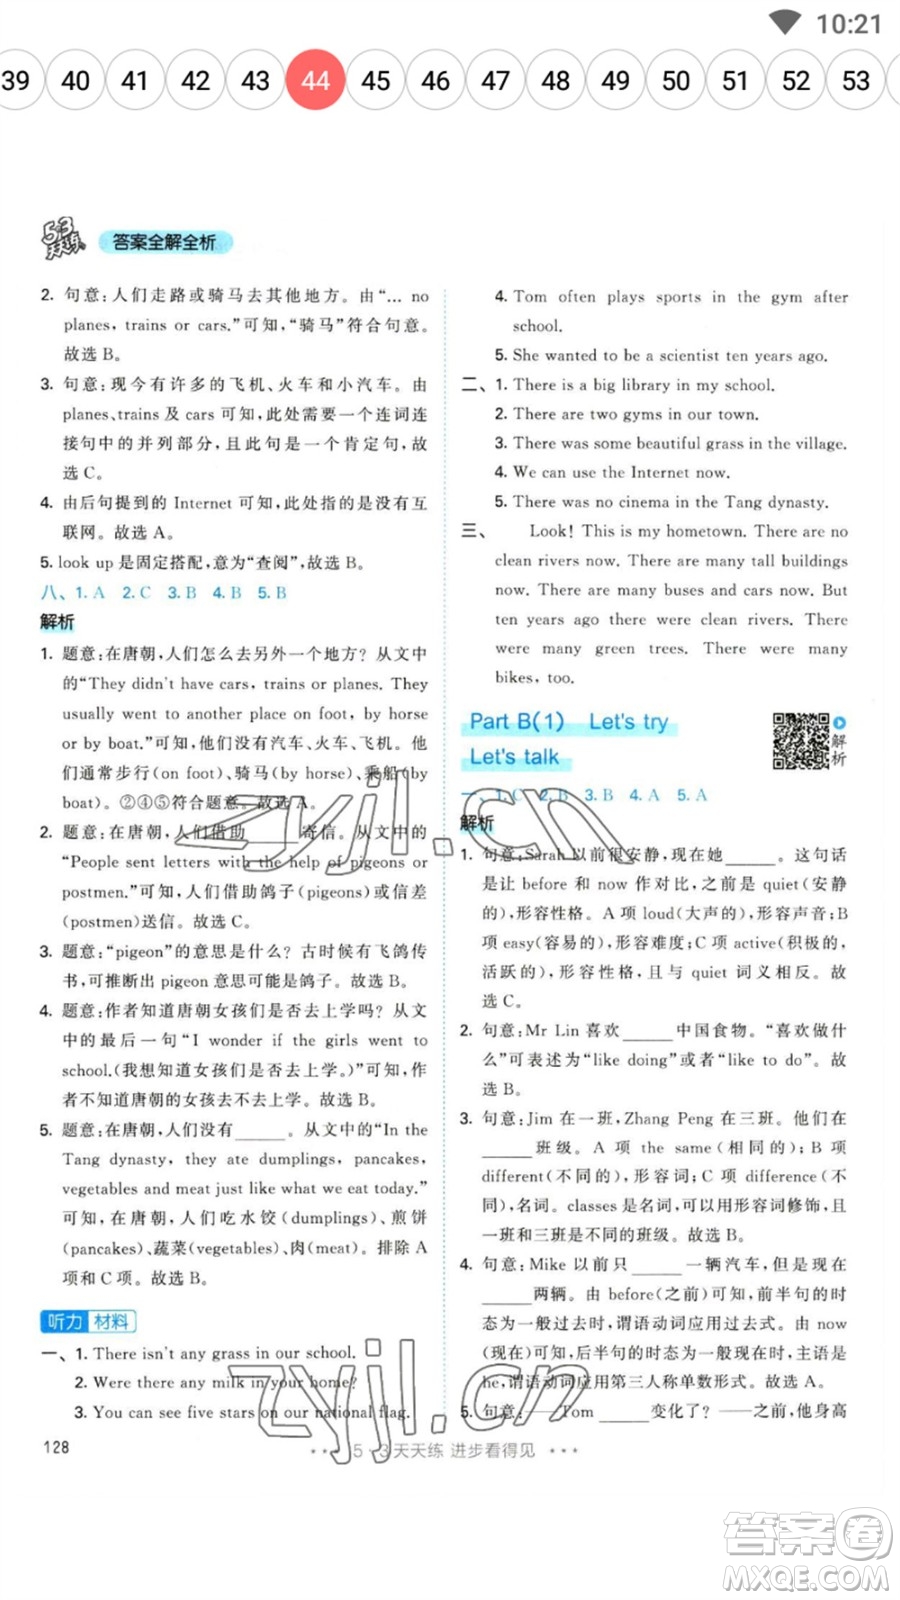 10:21
39 40 41 42 43 44 45 46 47 48 49 50 51 52 53
53
天天练
答案全解全析
2. 句意:人们走路或骑马去其他地方。由“... no
planes, trains or cars.”可知,“骑马”符合句意。
故选 B。
3. 句意:现今有许多的飞机、火车和小汽车。由
planes、trains 及 cars 可知,此处需要一个连词连
接句中的并列部分,且此句是一个肯定句,故
选 C。
4. 由后句提到的 Internet 可知,此处指的是互
联网。故选 A。
5. look up 是固定搭配,意为“查阅”,故选 B。
八、1. A 2. C 3. B 4. B 5. B
解析
1. 题意:在唐朝,人们怎么去另外一个地方? 从文中
的“They didn't have cars, trains or planes. They
usually went to another place on foot, by horse
or by boat.”可知,他们没有汽车、火车、飞机。他
们通常步行(on foot)、骑马(by horse)、乘船(by
boat)。②④⑤符合题意。故选 A。
2. 题意:在唐朝,人们借助______寄信。从文中的
“People sent letters with the help of pigeons or
postmen.”可知,人们借助鸽子(pigeons)或信差
(postmen)送信。故选 C。
3. 题意:“pigeon”的意思是什么? 古时候有飞鸽传
书,可推断出 pigeon 意思可能是鸽子。故选 B。
4. 题意:作者知道唐朝女孩们是否去上学吗? 从文
中的最后一句“I wonder if the girls went to
school.(我想知道女孩们是否去上学。)”可知,作
者不知道唐朝的女孩去不去上学。故选 B。
5. 题意:在唐朝,人们没有______。从文中的“In the
Tang dynasty, they ate dumplings, pancakes,
vegetables and meat just like what we eat today.”
可知,在唐朝,人们吃水饺(dumplings)、煎饼
(pancakes)、蔬菜(vegetables)、肉(meat)。排除 A
项和 C 项。故选 B。
听力 材料
一、1. There isn't any grass in our school.
2. Were there any milk in your home?
3. You can see five stars on our national flag.
4. Tom often plays sports in the gym after
school.
5. She wanted to be a scientist ten years ago.
二、1. There is a big library in my school.
2. There are two gyms in our town.
3. There was some beautiful grass in the village.
4. We can use the Internet now.
5. There was no cinema in the Tang dynasty.
三、 Look! This is my hometown. There are no
clean rivers now. There are many tall buildings
now. There are many buses and cars now. But
ten years ago there were clean rivers. There
were many green trees. There were many
bikes, too.
Part B(1) Let's try
Let's talk
解析
一、1. C 2. B 3. B 4. A 5. A
解析
1. 句意:Sarah 以前很安静,现在她______。这句话
是让 before 和 now 作对比,之前是 quiet(安静
的),形容性格。A 项 loud(大声的),形容声音;B
项 easy(容易的),形容难度;C 项 active(积极的,
活跃的),形容性格,且与 quiet 词义相反。故
选 C。
2. 句意:Mr Lin 喜欢______中国食物。“喜欢做什
么”可表述为“like doing”或者“like to do”。故
选 B。
3. 句意:Jim 在一班,Zhang Peng 在三班。他们在
______班级。A 项 the same(相同的);B 项
different(不同的),形容词;C 项 difference(不
同),名词。classes 是名词,可以用形容词修饰,且
一班和三班是不同的班级。故选 B。
4. 句意:Mike 以前只______一辆汽车,但是现在
______两辆。由 before(之前)可知,前半句的时
态为一般过去时,谓语动词应用过去式。由 now
(现在)可知,后半句的时态为一般现在时,主语是
he,谓语动词应用第三人称单数形式。故选 A。
5. 句意:——Tom ______变化了? ——对,他身高
128
5·3 天天练 进步看得见
zyjl.cn
zyjl.cn
答案卷
MXQE.COM